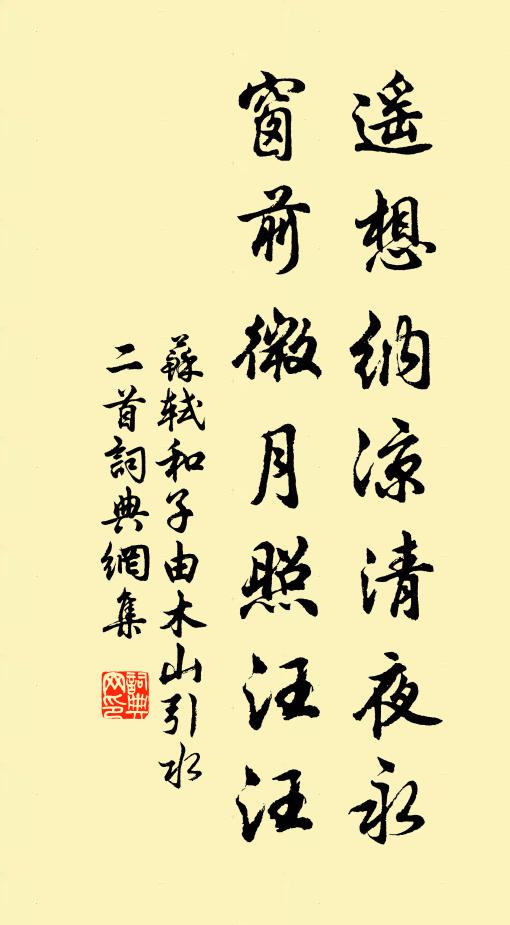 遥想納凉清夜永
窗前微月照汪汪
蘇軾和子由木山引水
二首詞典網集
詞典
网印